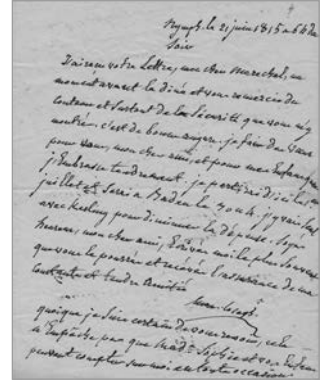 Nymph. le 21 juin 1815 a 6 h du
Soir
J'ai reçu votre Lettre, mon cher Marechal, au
moment avant le diné et vous remercie du
contenu et surtout de la sécurité que vous m'y
montrés. c'est de bon augure. je fais des vœux
pour vous, mon cher ami, et pour mes Enfans que
j'Embrasse tendrement. je partirai d'ici le
juillet et serai a Baden le 3 ou 4. j'y vais
avec pour diminuer la dépense. Soyés
heureux, mon cher ami, Ecrivés moi le plus souvent
que vous le pourrés et recevés l'assurance de ma
constante et tendre Amitié
quoique je sois certain de vous revoir, cela
n'Empêche pas que Mad.e Sophie et vos Enfans
peuvent compter sur moi en toute occasion